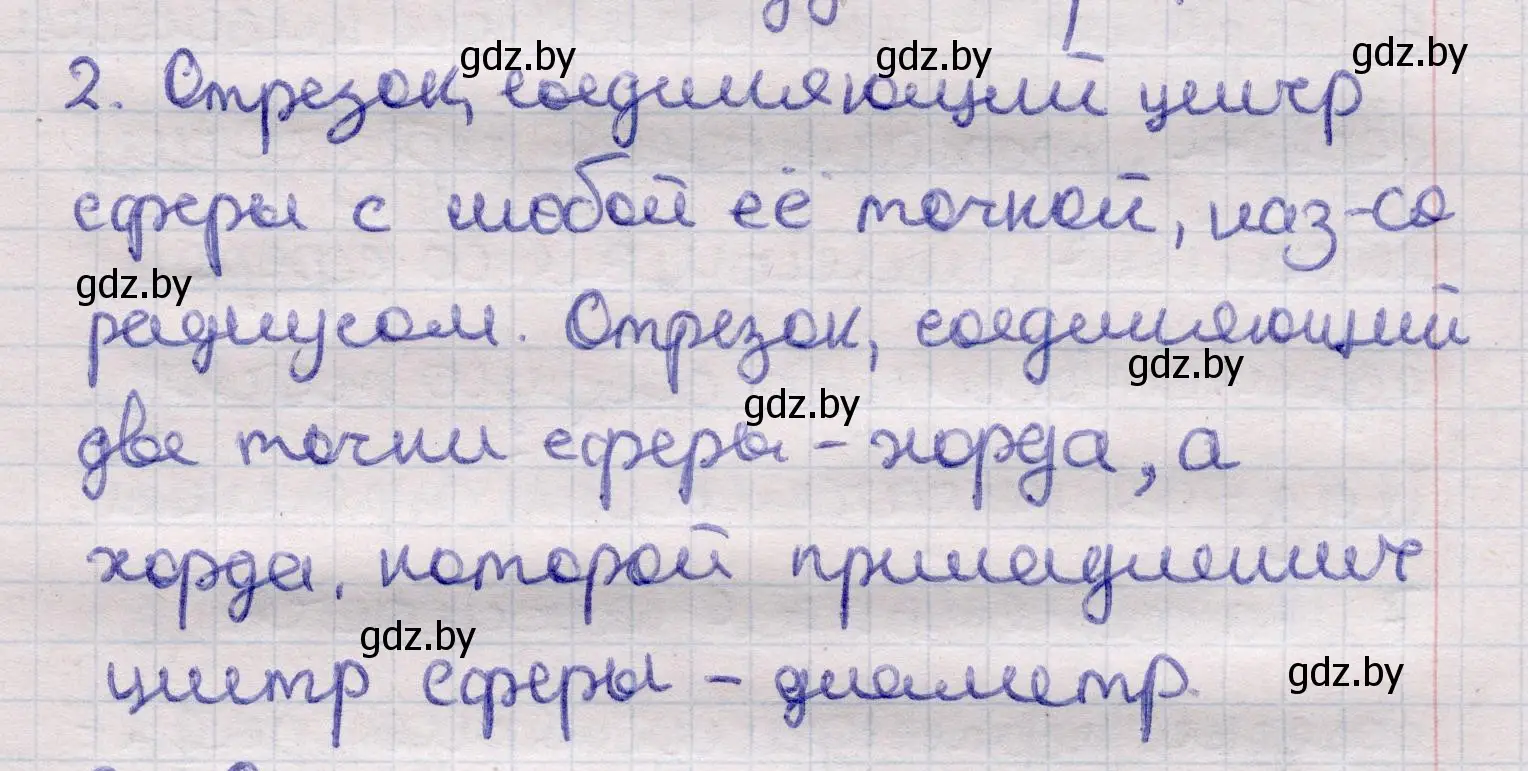 gdz.by gdz.by gdz.by
2. Отрезок, соединяющий центр
сферы с любой её точкой, наз-ся
gdz.by
радиусом. Отрезок, соединяющий
gdz.by
gdz.by
две точки сферы - хорда, а
хорда, которой принадлежит
gdz.by
центр сферы - диаметр.
gdz.by